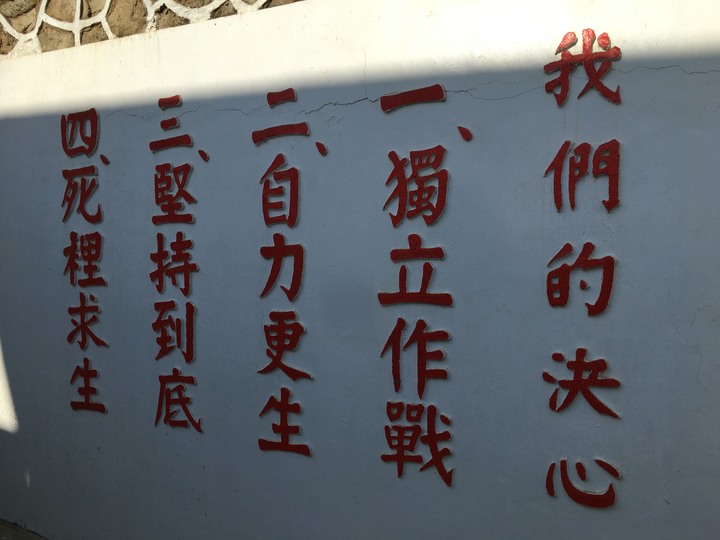 我們的決心
一、獨立作戰
二、自力更生
三、堅持到底
四、死裡求生